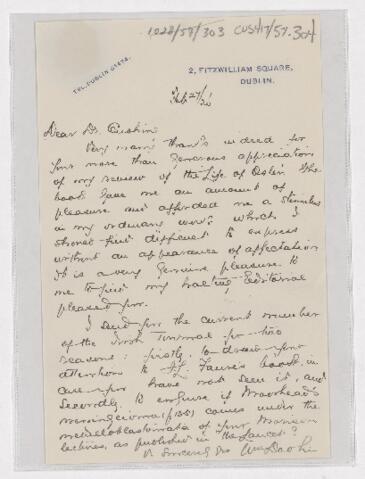 1028/58/303 CUSH17/57.304
TEL. DUBLIN 61475.
2, FITZWILLIAM SQUARE,
DUBLIN.
Feb 27/30
Dear Dr. Cushing
Very many thanks indeed for
your more than generous appreciation
of my review of the Life of Osler. The
book gave me an amount of
pleasure and afforded me a stimulus
in my ordinary work which I
should find difficult to express
without an appearance of affectation
It is a very genuine pleasure to
me to find my halting Editorial
pleased you.
I send you the current number
of the Irish Journal for two
reasons: firstly, to draw your
attention to book, in
case you have not seen it, and
Secondly, to enquire if Moorhead's
meningioma (p. 135) comes under the
of your
lectures, as published in "the Lancet"?